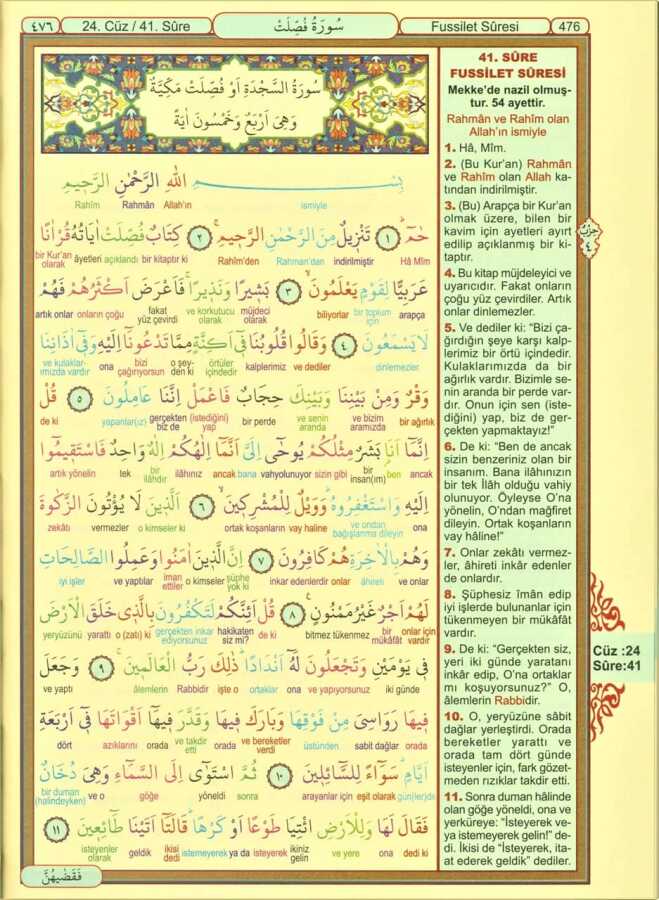 ٤٧٦
24. Cüz / 41. Sûre
سُورَةُ فُصِّلَتْ
Fussilet Sûresi
476
سُورَةُ السَّجْدَةِ اَوْ فُصِّلَتْ مَكِّيَّةٌ
وَهِىَ اَرْبَعٌ وَخَمْسُونَ اٰيَةً
بِسْمِ اللّٰهِ الرَّحْمٰنِ الرَّحِيمِ
ismiyle Allah'ın Rahmân Rahîm
حٰمٓ ﴿١﴾ تَنْزِيلٌ مِنَ الرَّحْمٰنِ الرَّحِيمِ ﴿٢﴾ كِتَابٌ فُصِّلَتْ اٰيَاتُهُ قُرْاٰنًا
Hâ Mîm indirilmiştir Rahman'dan Rahîm'den bir kitaptır ki açıklandı âyetleri bir Kur'an olarak
عَرَبِيًّا لِقَوْمٍ يَعْلَمُونَ ﴿٣﴾ بَشِيرًا وَنَذِيرًا فَاَعْرَضَ اَكْثَرُهُمْ فَهُمْ
arapça bir toplum için biliyorlar müjdeci olarak ve korkutucu olarak fakat yüz çevirdi onların çoğu artık onlar
لَا يَسْمَعُونَ ﴿٤﴾ وَقَالُوا قُلُوبُنَا فٖٓى اَكِنَّةٍ مِمَّا تَدْعُونَٓا اِلَيْهِ وَفٖٓى اٰذَانِنَا
dinlemezler ve dediler kalplerimiz örtüler içindedir o şey-den ki bizi çağırıyorsun ona ve kulaklar-ımızda vardır
وَقْرٌ وَمِنْ بَيْنِنَا وَبَيْنِكَ حِجَابٌ فَاعْمَلْ اِنَّنَا عَامِلُونَ ﴿٥﴾ قُلْ
bir ağırlık ve bizim aramızda ve senin aranda bir perde (istediğini) yap gerçekten biz de yapanlar(ız) de ki
اِنَّمَٓا اَنَا۬ بَشَرٌ مِثْلُكُمْ يُوحٰٓى اِلَىَّ اَنَّمَٓا اِلٰهُكُمْ اِلٰهٌ وَاحِدٌ فَاسْتَقِيمُٓوا
ancak ben bir insan(ım) sizin gibi vahyolunuyor bana ancak ilâhınız bir ilâhdır tek artık yönelin
اِلَيْهِ وَاسْتَغْفِرُوهُ وَوَيْلٌ لِلْمُشْرِكِينَ ﴿٦﴾ اَلَّذِينَ لَا يُؤْتُونَ الزَّكٰوةَ
ona ve ondan bağışlanma dileyin vay haline ortak koşanların o kimseler ki vermezler zekâtı
وَهُمْ بِالْاٰخِرَةِ هُمْ كَافِرُونَ ﴿٧﴾ اِنَّ الَّذِينَ اٰمَنُوا وَعَمِلُوا الصَّالِحَاتِ
ve onlar âhireti onlar inkar edenlerdir şüphe yok ki o kimseler iman ettiler ve yaptılar iyi işler
لَهُمْ اَجْرٌ غَيْرُ مَمْنُونٍ ﴿٨﴾ قُلْ اَئِنَّكُمْ لَتَكْفُرُونَ بِالَّذِى خَلَقَ الْاَرْضَ
onlar için vardır bir mükâfât bitmez tükenmez de ki hakikaten siz mi? gerçekten inkar ediyorsunuz o (zatı) ki yarattı yeryüzünü
فِى يَوْمَيْنِ وَتَجْعَلُونَ لَهُٓ اَنْدَادًا ذٰلِكَ رَبُّ الْعَالَمِينَ ﴿٩﴾ وَجَعَلَ
iki günde ve yapıyorsunuz ona ortaklar işte o Rabbidir âlemlerin ve yaptı
فِيهَا رَوَاسِىَ مِنْ فَوْقِهَا وَبَارَكَ فِيهَا وَقَدَّرَ فِيهَٓا اَقْوَاتَهَا فٖٓى اَرْبَعَةِ
orada sabit dağlar üstünden ve bereketler verdi orada ve takdir etti orada azıklarını dört
اَيَّامٍ سَوَٓاءً لِلسَّٓائِلِينَ ﴿١٠﴾ ثُمَّ اسْتَوٰٓى اِلَى السَّمَٓاءِ وَهِىَ دُخَانٌ
gün(ler)de eşit olarak arayanlar için sonra yöneldi göğe ve o bir duman (halindeyken)
فَقَالَ لَهَا وَلِلْاَرْضِ ائْتِيَا طَوْعًا اَوْ كَرْهًا قَالَتَٓا اَتَيْنَا طَٓائِعِينَ ﴿١١﴾
dedi ki ona ve yere ikiniz gelin isteyerek ya da istemeyerek ikisi dedi geldik isteyenler olarak
فَقَضٰيهُنَّ
41. SÛRE
FUSSİLET SÛRESİ
Mekke'de nazil olmuş-
tur. 54 ayettir.
Rahmân ve Rahîm olan
Allah'ın ismiyle
1. Hâ, Mîm.
2. (Bu Kur'an) Rahmân
ve Rahîm olan Allah ka-
tından indirilmiştir.
3. (Bu) Arapça bir Kur'an
olmak üzere, bilen bir
kavim için ayetleri ayırt
edilip açıklanmış bir ki-
taptır.
4. Bu kitap müjdeleyici ve
uyarıcıdır. Fakat onların
çoğu yüz çevirdiler. Artık
onlar dinlemezler.
5. Ve dediler ki: "Bizi ça-
ğırdığın şeye karşı kalp-
lerimiz bir örtü içindedir.
Kulaklarımızda da bir
ağırlık vardır. Bizimle se-
nin aranda bir perde var-
dır. Onun için sen (iste-
diğini) yap, biz de ger-
çekten yapmaktayız!"
6. De ki: "Ben de ancak
sizin benzeriniz olan bir
insanım. Bana ilâhınızın
bir tek İlâh olduğu vahiy
olunuyor. Öyleyse O'na
yönelin, O'ndan mağfiret
dileyin. Ortak koşanların
vay hâline!"
7. Onlar zekâtı vermez-
ler, âhireti inkâr edenler
de onlardır.
8. Şüphesiz îmân edip
iyi işlerde bulunanlar için
tükenmeyen bir mükâfât
vardır.
9. De ki: "Gerçekten siz,
yeri iki günde yaratanı
inkâr edip, O'na ortaklar
mı koşuyorsunuz?" O,
âlemlerin Rabbidir.
10. O, yeryüzüne sâbit
dağlar yerleştirdi. Orada
bereketler yarattı ve
orada tam dört günde
isteyenler için, fark gözet-
meden rızıklar takdir etti.
11. Sonra duman hâlinde
olan göğe yöneldi, ona ve
yerküreye: "İsteyerek ve-
ya istemeyerek gelin!" de-
di. İkisi de "İsteyerek, ita-
at ederek geldik" dediler.
حِزْبُ
٤
Cüz :24
Sûre:41